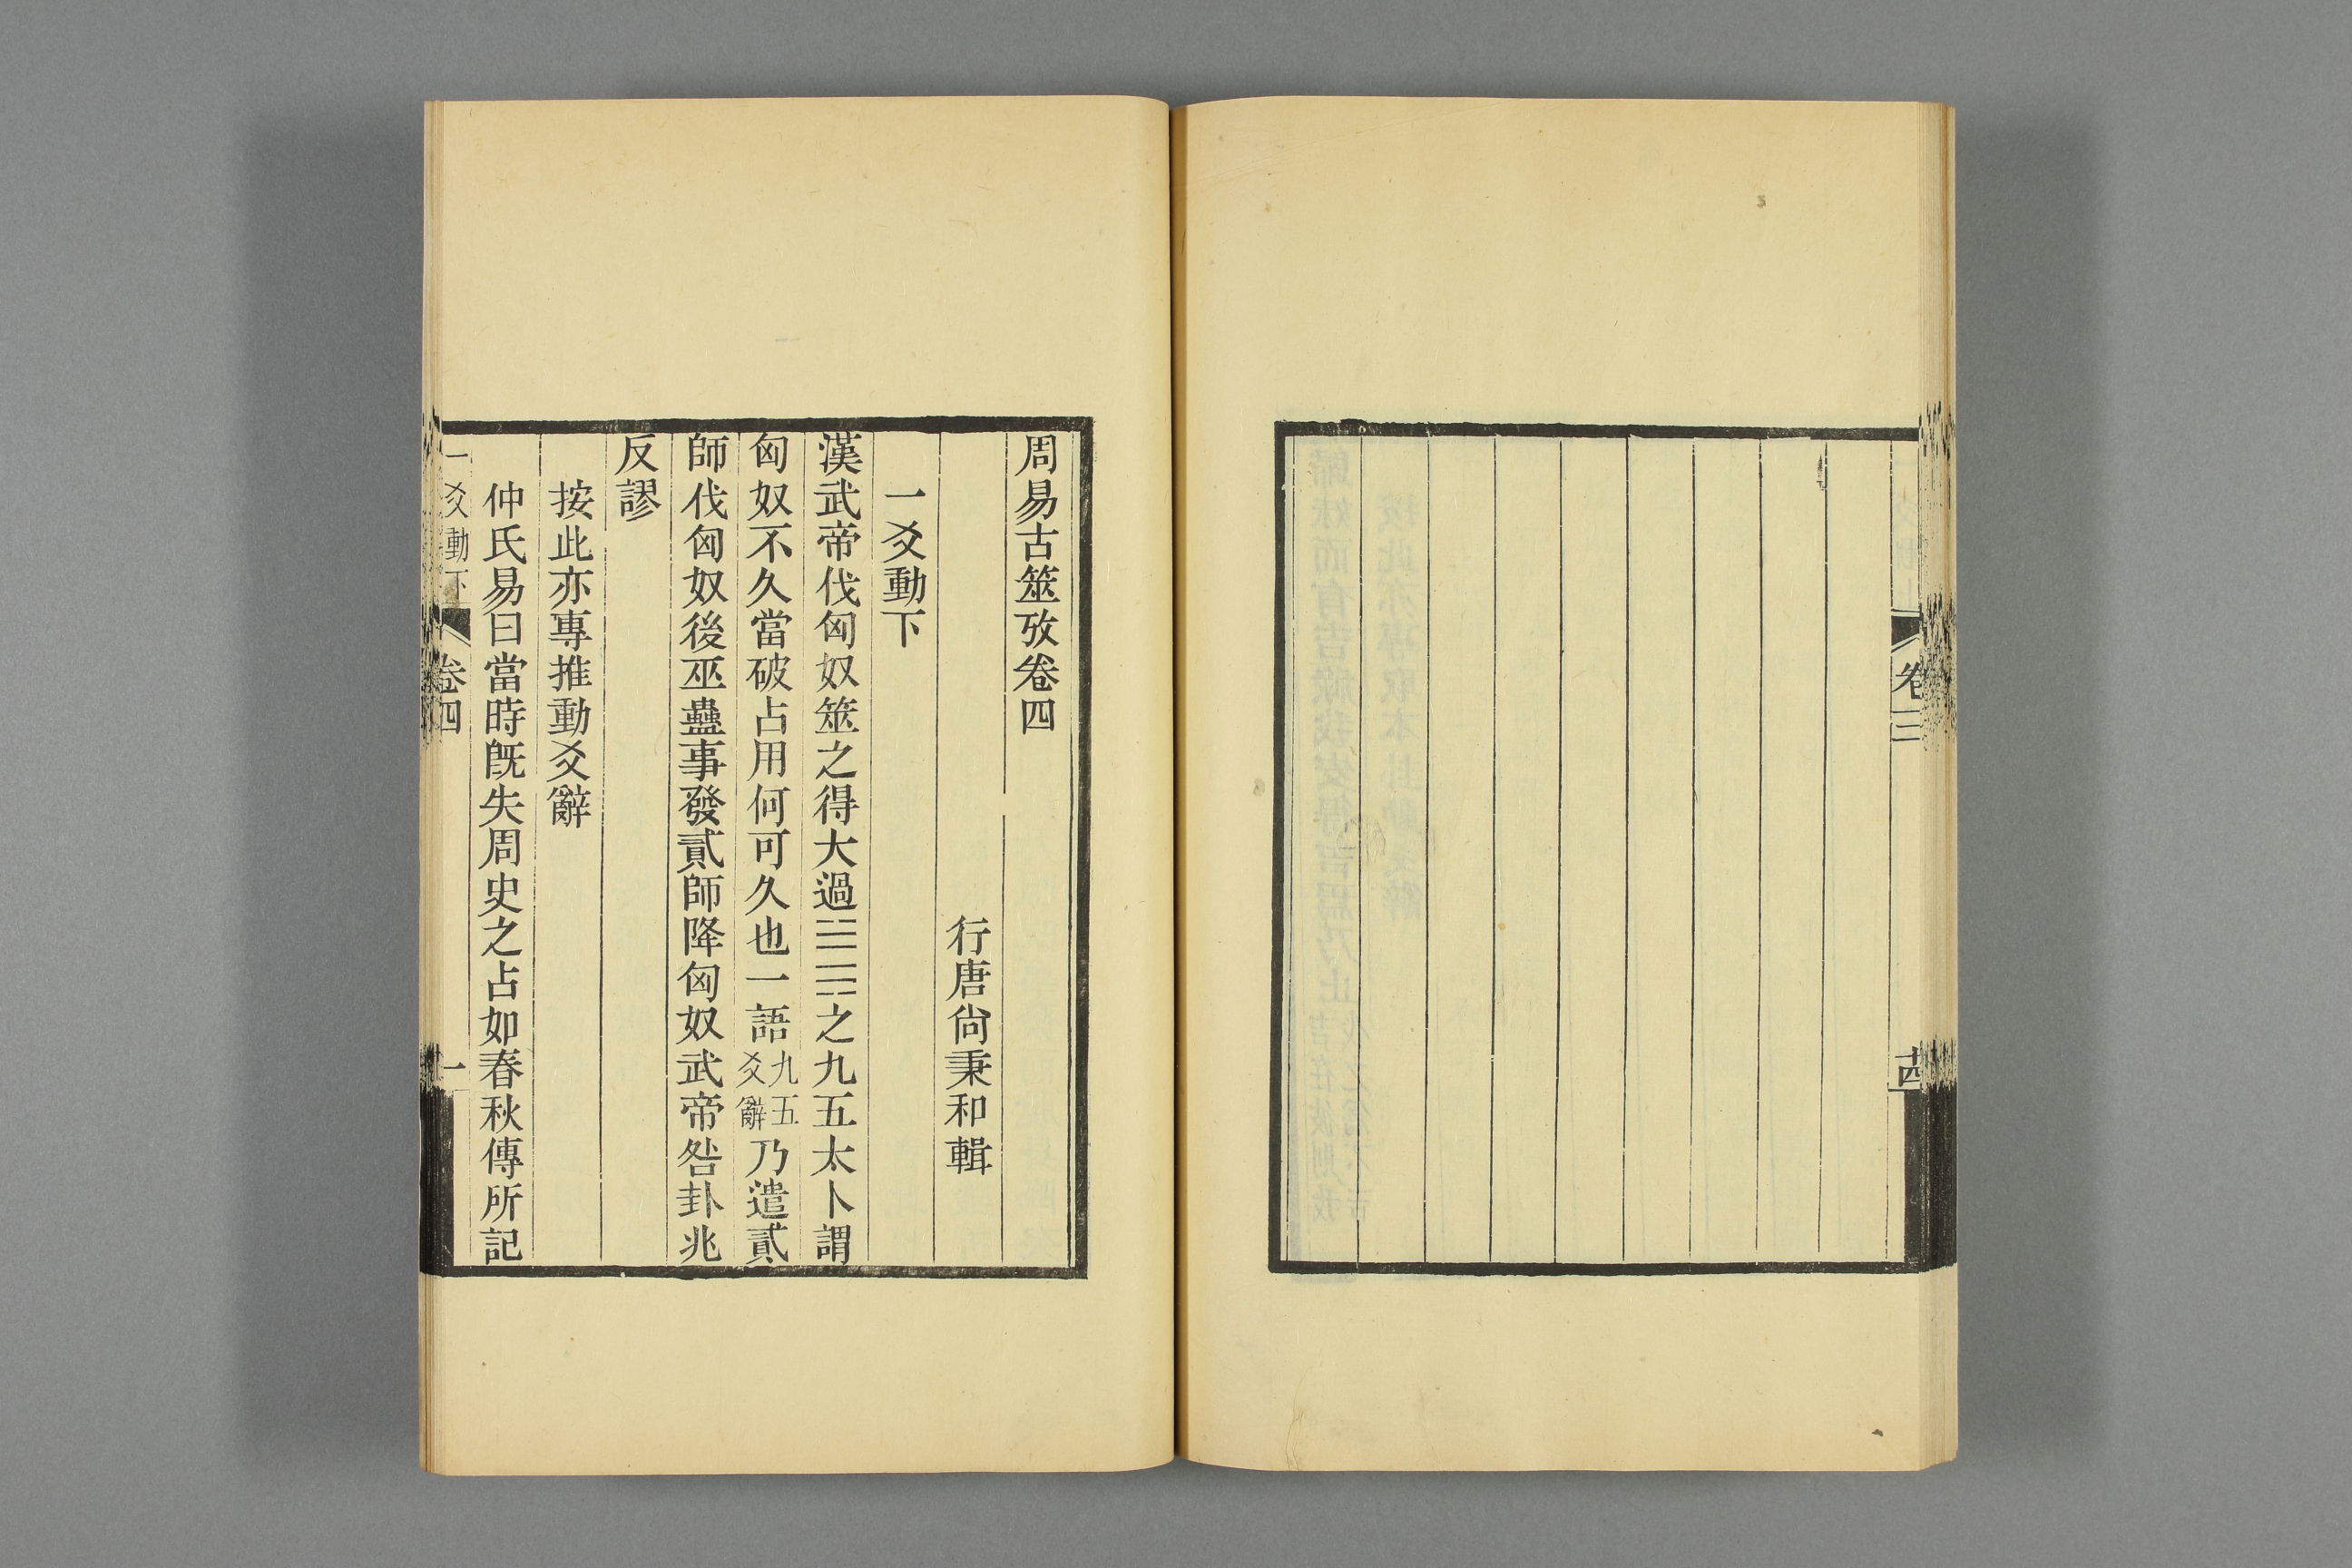 卷三
十四
周易古筮攷卷四
行唐尙秉和輯
一爻動下
漢武帝伐匈奴筮之得大過䷛䷟之九五太卜謂
匈奴不久當破占用何可久也一語九五爻辭乃遣貳
師伐匈奴後巫蠱事發貳師降匈奴武帝咎卦兆
反謬
按此亦專推動爻辭
仲氏易曰當時旣失周史之占如春秋傳所記
一爻動下
卷四
一